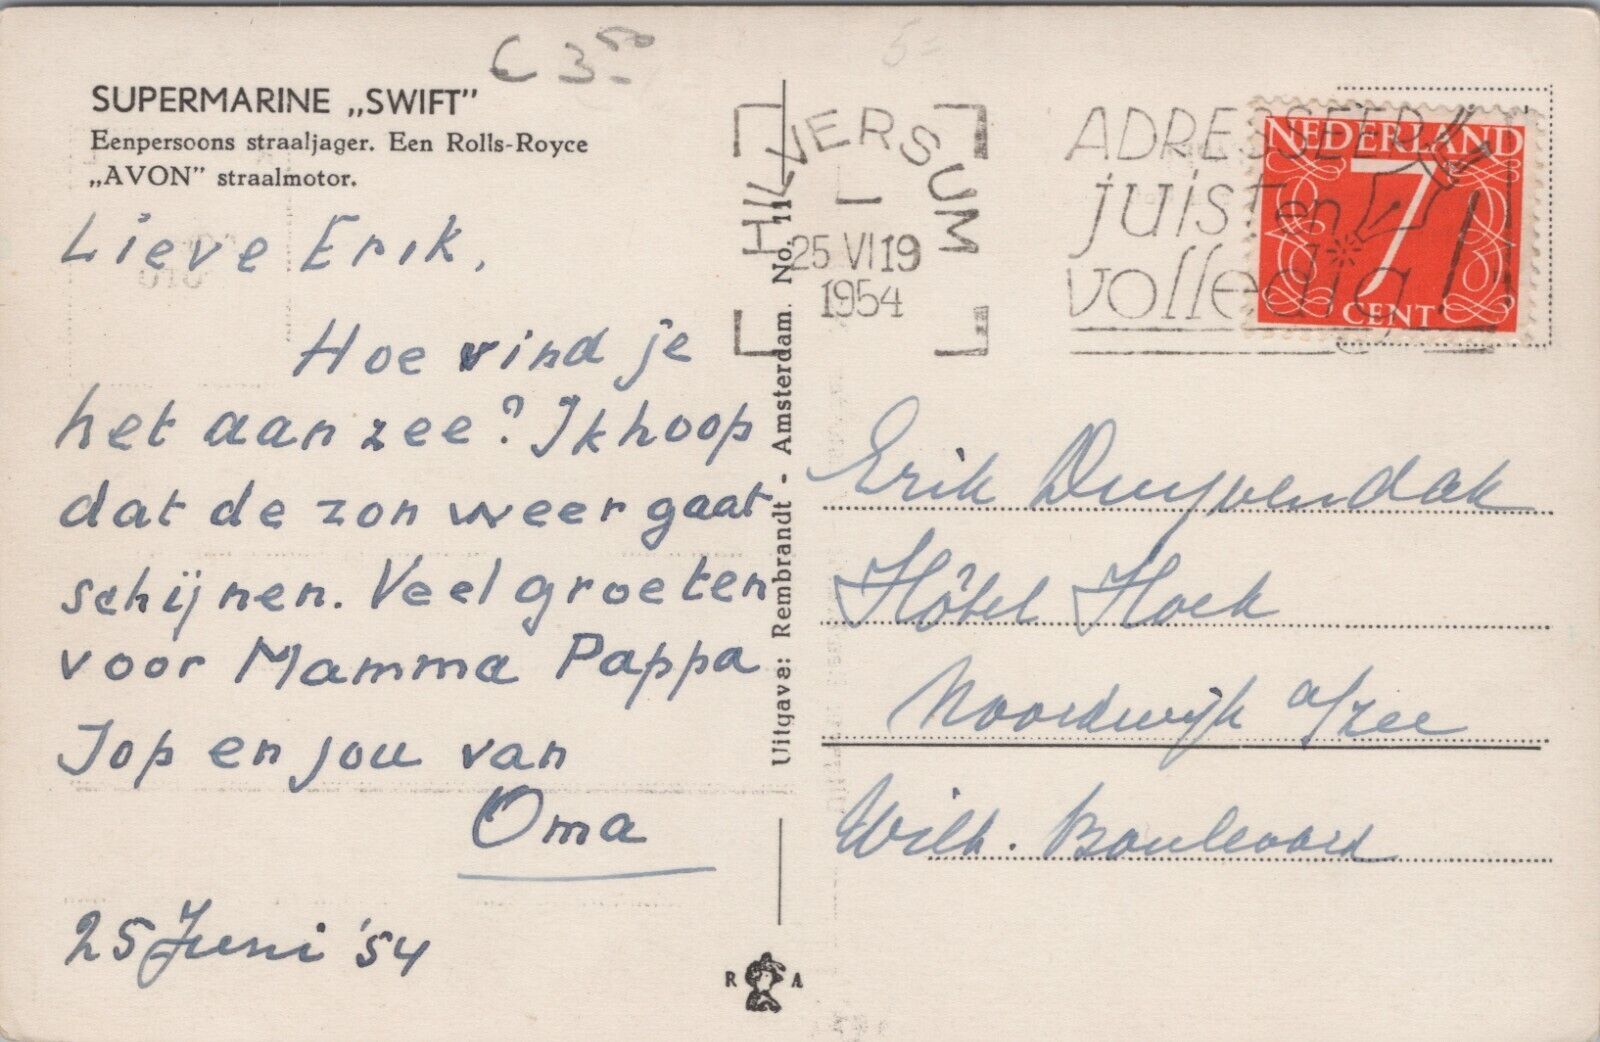 € 3.50
5=
SUPERMARINE „SWIFT"
Eenpersoons straaljager. Een Rolls-Royce
„AVON" straalmotor.
Lieve Erik,
Hoe vind je
het aan zee? Ik hoop
dat de zon weer gaat
schijnen. Veel groeten
voor Mamma Pappa
Jop en jou van
Oma
25 Juni '54
Uitgave: Rembrandt - Amsterdam. No. 11
R A
HILVERSUM
25 VI 19
1954
ADRESSEER
juist en
volledig!
NEDERLAND
7
CENT
Erik Duyvendak
Hôtel Hoek
Noordwijk a/zee
Wilh. Boulevard